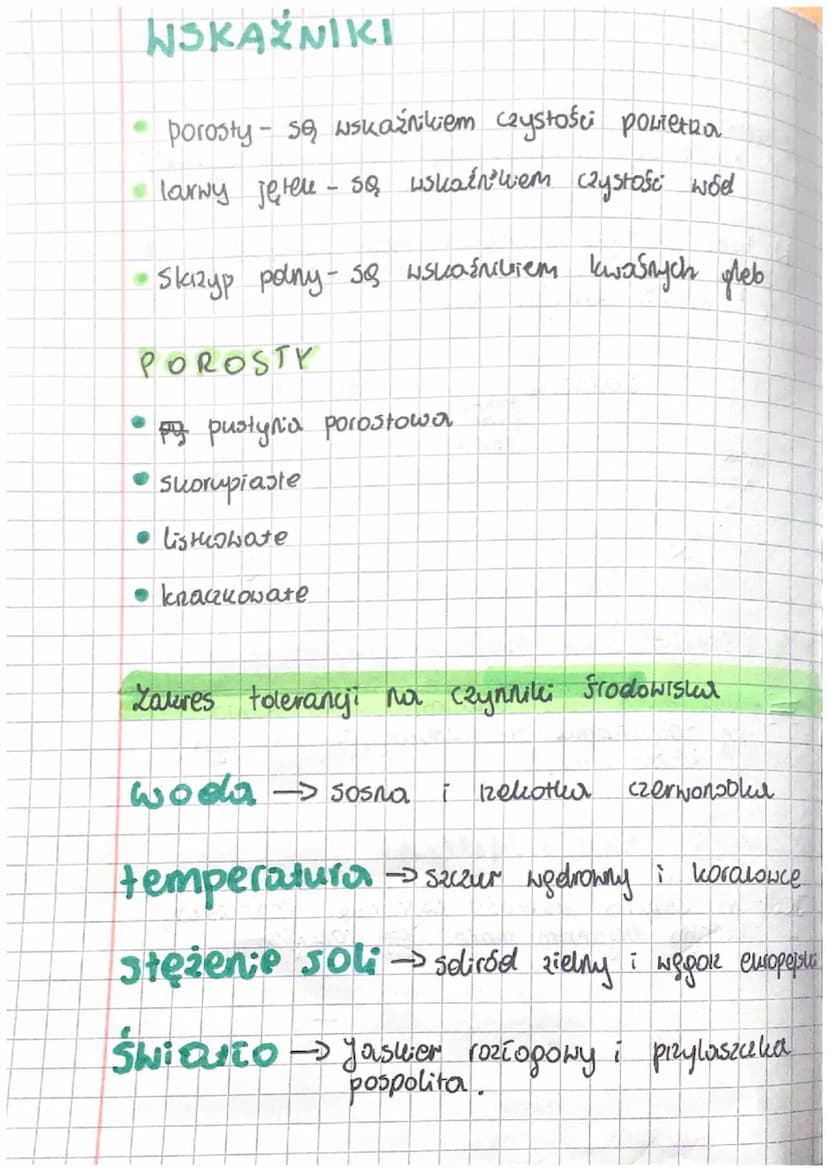 WSKAŹNIKI
• porosty - są wskaźnikiem czystości powietrza
• larwy jętek - są wskaźnikiem czystości wód
• Skrzyp polny - są wskaźnikiem kwaśnych gleb
POROSTY
• pustynia porostowa
• skorupiaste
• listkowate
• krzaczkowate
Zakres tolerancji na czynniki środowiska
woda → sosna i rzekotka czerwonooka
temperatura → szczur wędrowny i koralowce
stężenie soli → soliród zielny i węgorz europejski
Światło → Jaskier rozłogowy i przylaszczka
pospolita.